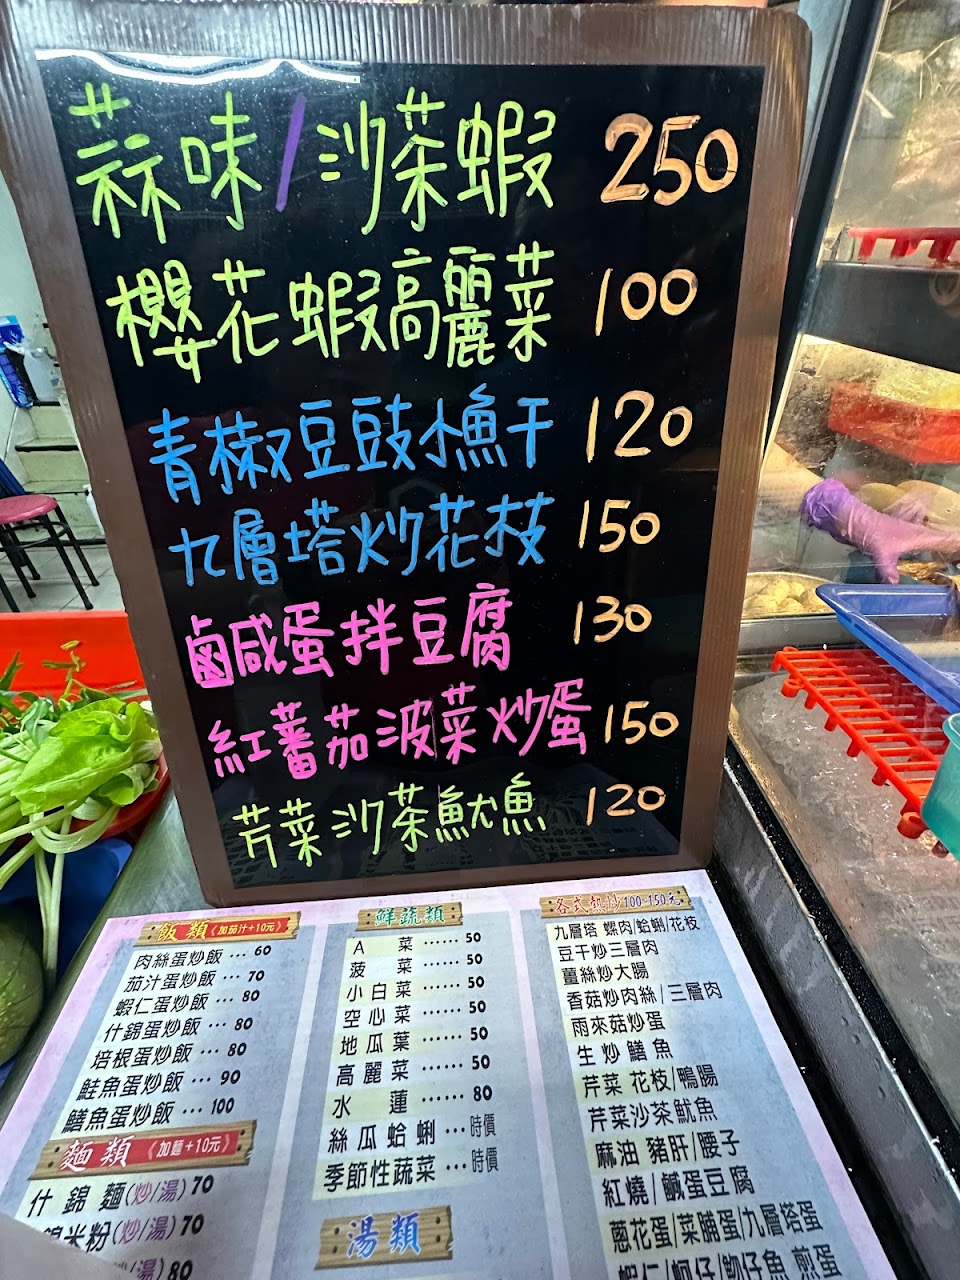 蒜味/沙茶蝦 250
櫻花蝦高麗菜 100
青椒豆豉小魚干 120
九層塔炒花枝 150
鹹蛋拌豆腐 130
紅蕃茄波菜炒蛋 150
芹菜沙茶魷魚 120
飯類《加茄汁+10元》
肉絲蛋炒飯 ··· 60
茄汁蛋炒飯 ··· 70
蝦仁蛋炒飯 ··· 80
什錦蛋炒飯 ··· 80
培根蛋炒飯 ··· 80
鮭魚蛋炒飯 ··· 90
鱔魚蛋炒飯 ··· 100
麵類《加麵+10元》
什錦麵(炒/湯) 70
米粉(炒/湯) 70
/湯) 80
鮮蔬類
A菜 ······ 50
菠菜 ······ 50
小白菜 ······ 50
空心菜 ······ 50
地瓜葉 ······ 50
高麗菜 ······ 50
水蓮 ······ 80
絲瓜蛤蜊 ··· 時價
季節性蔬菜 ··· 時價
湯類
各式熱炒100~150元
九層塔 螺肉/蛤蜊/花枝
豆干炒三層肉
薑絲炒大腸
香菇炒肉絲/三層肉
雨來菇炒蛋
生炒鱔魚
芹菜 花枝/鴨腸
芹菜沙茶魷魚
麻油 豬肝/腰子
紅燒/鹹蛋豆腐
蔥花蛋/菜脯蛋/九層塔蛋
蝦仁/蚵仔/魩仔魚 煎蛋